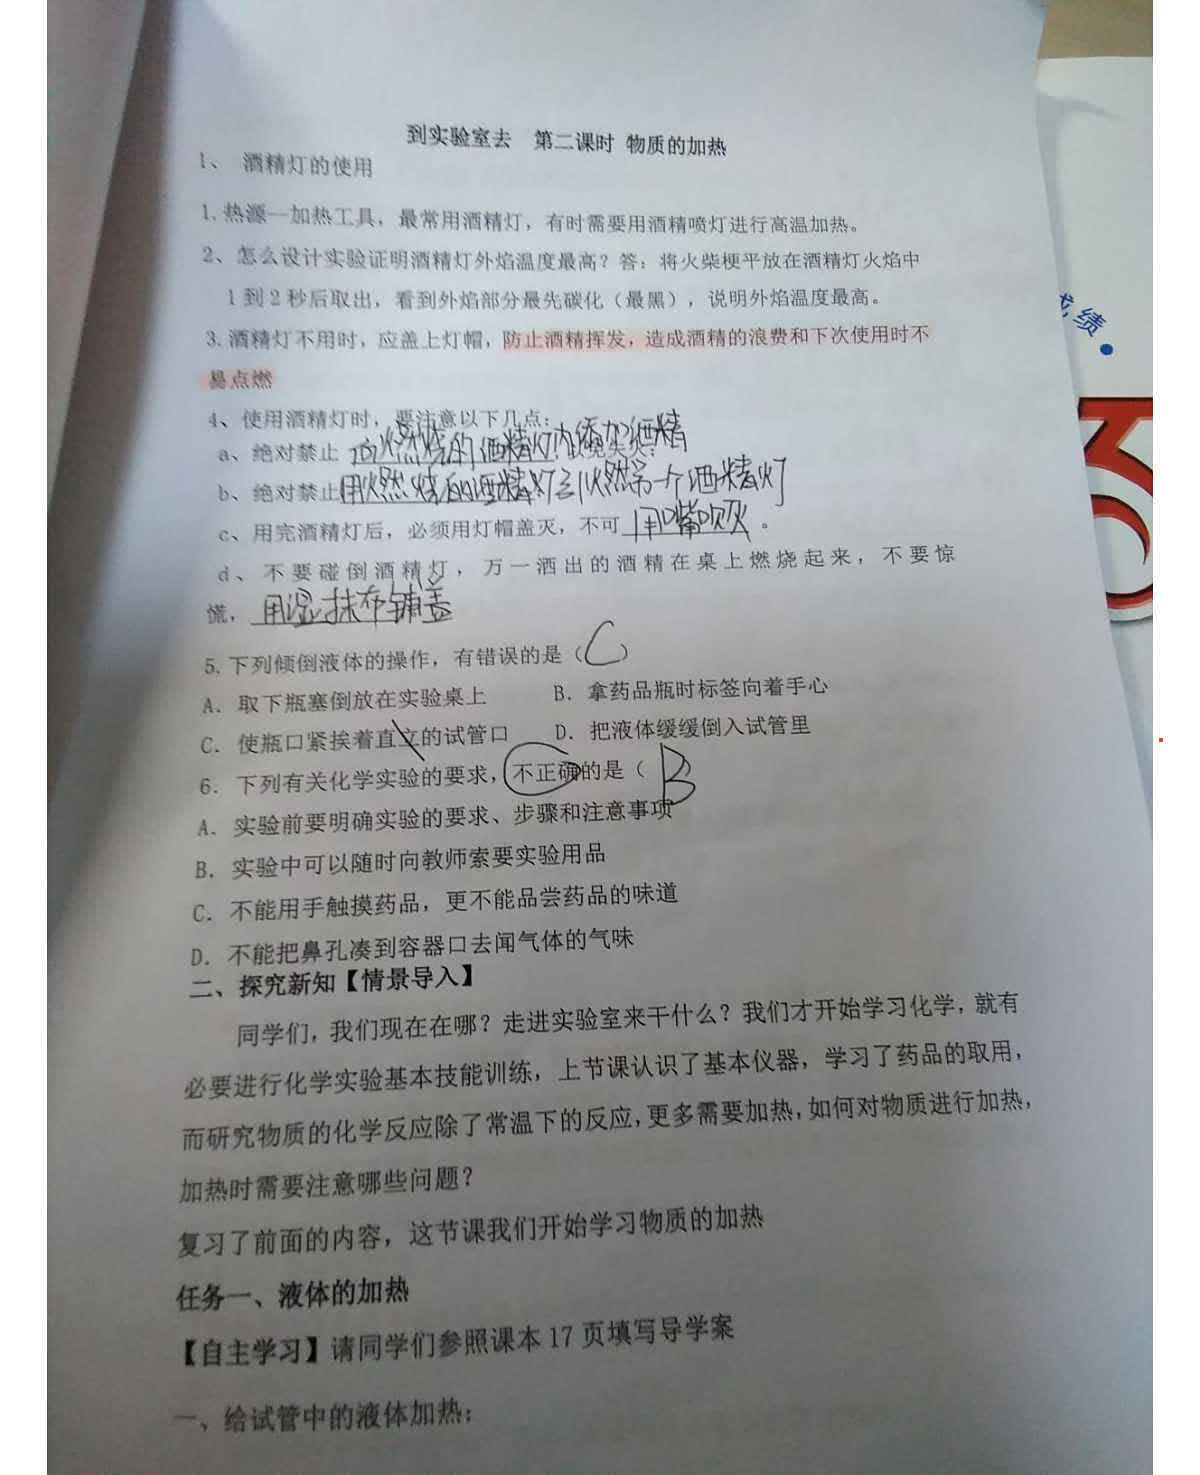 到实验室去 第二课时 物质的加热
1、 酒精灯的使用
1.热源—加热工具，最常用酒精灯，有时需要用酒精喷灯进行高温加热。
2、怎么设计实验证明酒精灯外焰温度最高？答：将火柴梗平放在酒精灯火焰中
1到2秒后取出，看到外焰部分最先碳化（最黑），说明外焰温度最高。
3.酒精灯不用时，应盖上灯帽，防止酒精挥发，造成酒精的浪费和下次使用时不
易点燃
4、使用酒精灯时，要注意以下几点：
a、绝对禁止 向燃烧的酒精灯内添加酒精
b、绝对禁止用燃烧的酒精灯引燃另一个酒精灯
c、用完酒精灯后，必须用灯帽盖灭，不可 用嘴吹灭 。
d、不要碰倒酒精灯，万一洒出的酒精在桌上燃烧起来，不要惊
慌，用湿抹布铺盖
5.下列倾倒液体的操作，有错误的是（ C ）
A．取下瓶塞倒放在实验桌上 B．拿药品瓶时标签向着手心
C．使瓶口紧挨着直立的试管口 D．把液体缓缓倒入试管里
6．下列有关化学实验的要求，不正确的是（ B ）
A．实验前要明确实验的要求、步骤和注意事项
B．实验中可以随时向教师索要实验用品
C．不能用手触摸药品，更不能品尝药品的味道
D．不能把鼻孔凑到容器口去闻气体的气味
二、探究新知【情景导入】
同学们，我们现在在哪？走进实验室来干什么？我们才开始学习化学，就有
必要进行化学实验基本技能训练，上节课认识了基本仪器，学习了药品的取用，
而研究物质的化学反应除了常温下的反应，更多需要加热，如何对物质进行加热，
加热时需要注意哪些问题？
复习了前面的内容，这节课我们开始学习物质的加热
任务一、液体的加热
【自主学习】请同学们参照课本 17 页填写导学案
一、给试管中的液体加热：
绩